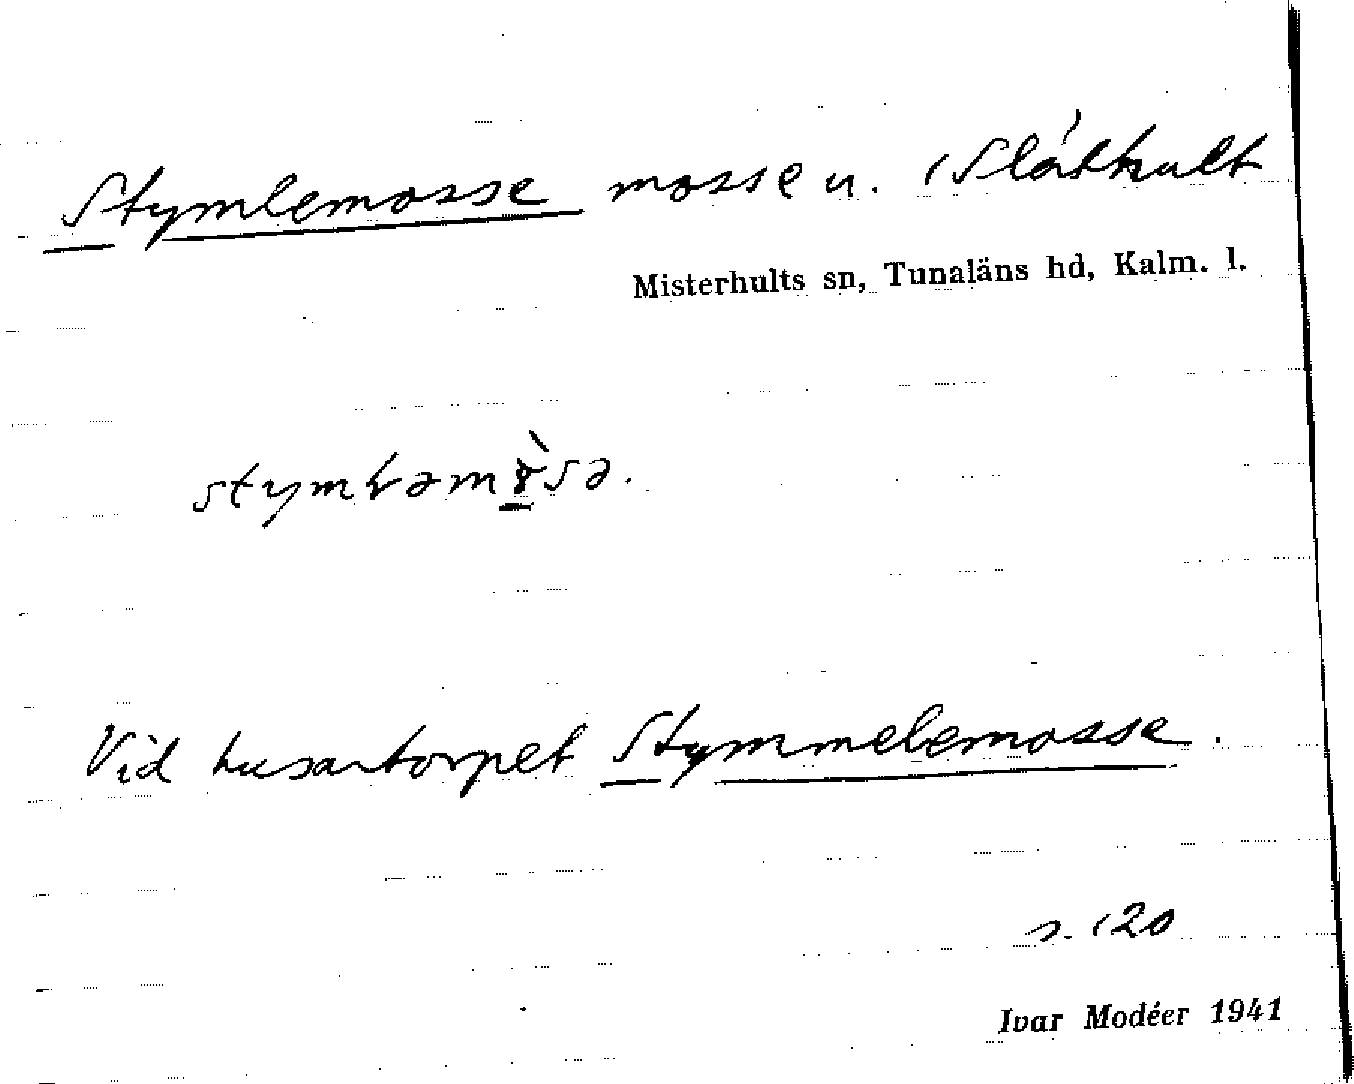 Stymlemosse mosse u. 1 Slåthult
Misterhults sn, Tunaläns hd, Kalm. l.
Vid husartorpet Stymmelemosse.
s. 120
Ivar Modéer 1941